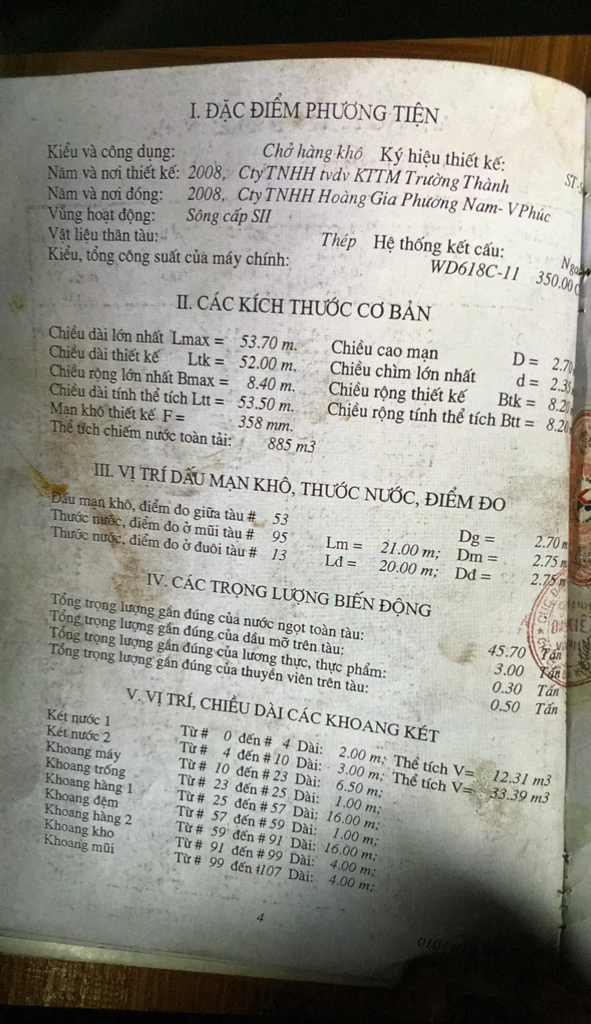 I. ĐẶC ĐIỂM PHƯƠNG TIỆN
Kiểu và công dụng: Chở hàng khô Ký hiệu thiết kế:
Năm và nơi thiết kế: 2008, Cty TNHH tvdv KTTM Trường Thành
Năm và nơi đóng: 2008, Cty TNHH Hoàng Gia Phương Nam- VPhúc
Vùng hoạt động: Sông cấp SII
Vật liệu thân tàu: Thép Hệ thống kết cấu:
Kiểu, tổng công suất của máy chính: WD618C-11 350.00
II. CÁC KÍCH THƯỚC CƠ BẢN
Chiều dài lớn nhất Lmax = 53.70 m. Chiều cao mạn D = 2.70
Chiều dài thiết kế Ltk = 52.00 m. Chiều chìm lớn nhất d = 2.3
Chiều rộng lớn nhất Bmax = 8.40 m. Chiều rộng thiết kế Btk = 8.20
Chiều dài tính thể tích Ltt = 53.50 m. Chiều rộng tính thể tích Btt = 8.20
Mạn khô thiết kế F = 358 mm.
Thể tích chiếm nước toàn tải: 885 m3
III. VỊ TRÍ DẤU MẠN KHÔ, THƯỚC NƯỚC, ĐIỂM ĐO
Dấu mạn khô, điểm đo giữa tàu # 53 Dg = 2.70 m
Thước nước, điểm đo ở mũi tàu # 95 Lm = 21.00 m; Dm = 2.75 m
Thước nước, điểm đo ở đuôi tàu # 13 Lđ = 20.00 m; Dđ = 2.75 m
IV. CÁC TRỌNG LƯỢNG BIẾN ĐỘNG
Tổng trọng lượng gần đúng của nước ngọt toàn tàu: 45.70 Tấn
Tổng trọng lượng gần đúng của dầu mỡ trên tàu: 3.00 Tấn
Tổng trọng lượng gần đúng của lương thực, thực phẩm: 0.30 Tấn
Tổng trọng lượng gần đúng của thuyền viên trên tàu: 0.50 Tấn
V. VỊ TRÍ, CHIỀU DÀI CÁC KHOANG KÉT
Két nước 1 Từ # 0 đến # 4 Dài: 2.00 m; Thể tích V= 12.31 m3
Két nước 2 Từ # 4 đến # 10 Dài: 3.00 m; Thể tích V= 33.39 m3
Khoang máy Từ # 10 đến # 23 Dài: 6.50 m;
Khoang trống Từ # 23 đến # 25 Dài: 1.00 m;
Khoang hàng 1 Từ # 25 đến # 57 Dài: 16.00 m;
Khoang đệm Từ # 57 đến # 59 Dài: 1.00 m;
Khoang hàng 2 Từ # 59 đến # 91 Dài: 16.00 m;
Khoang kho Từ # 91 đến # 99 Dài: 4.00 m;
Khoang mũi Từ # 99 đến #107 Dài: 4.00 m;
4